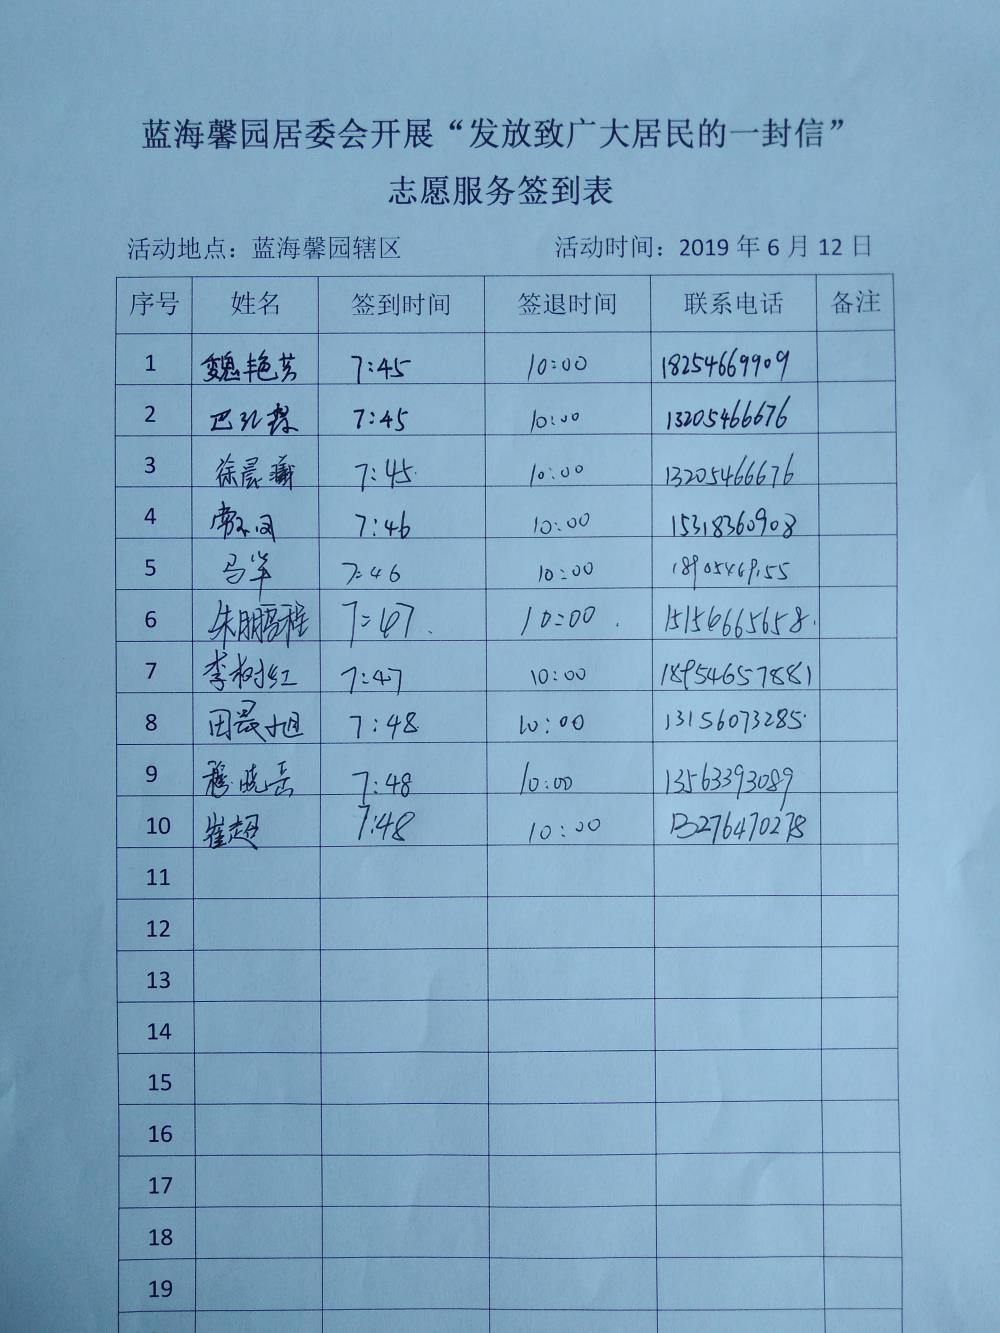 蓝海馨园居委会开展“发放致广大居民的一封信”
志愿服务签到表
活动地点：蓝海馨园辖区 活动时间：2019 年 6 月 12 日
序号 姓名 签到时间 签退时间 联系电话 备注
1 魏艳芳 7:45 10:00 18254669909
2 7:45 10:00 13205466676
3 徐晨曦 7:45 10:00 13205466676
4 7:46 10:00 15318360908
5 马军 7:46 10:00
6 朱鹏程 7:47 10:00 15156665658
7 李树红 7:47 10:00 18954657881
8 田晨旭 7:48 10:00 13156073285
9 穆晓岳 7:48 10:00 13563393089
10 崔超 7:48 10:00 13276470278
11
12
13
14
15
16
17
18
19